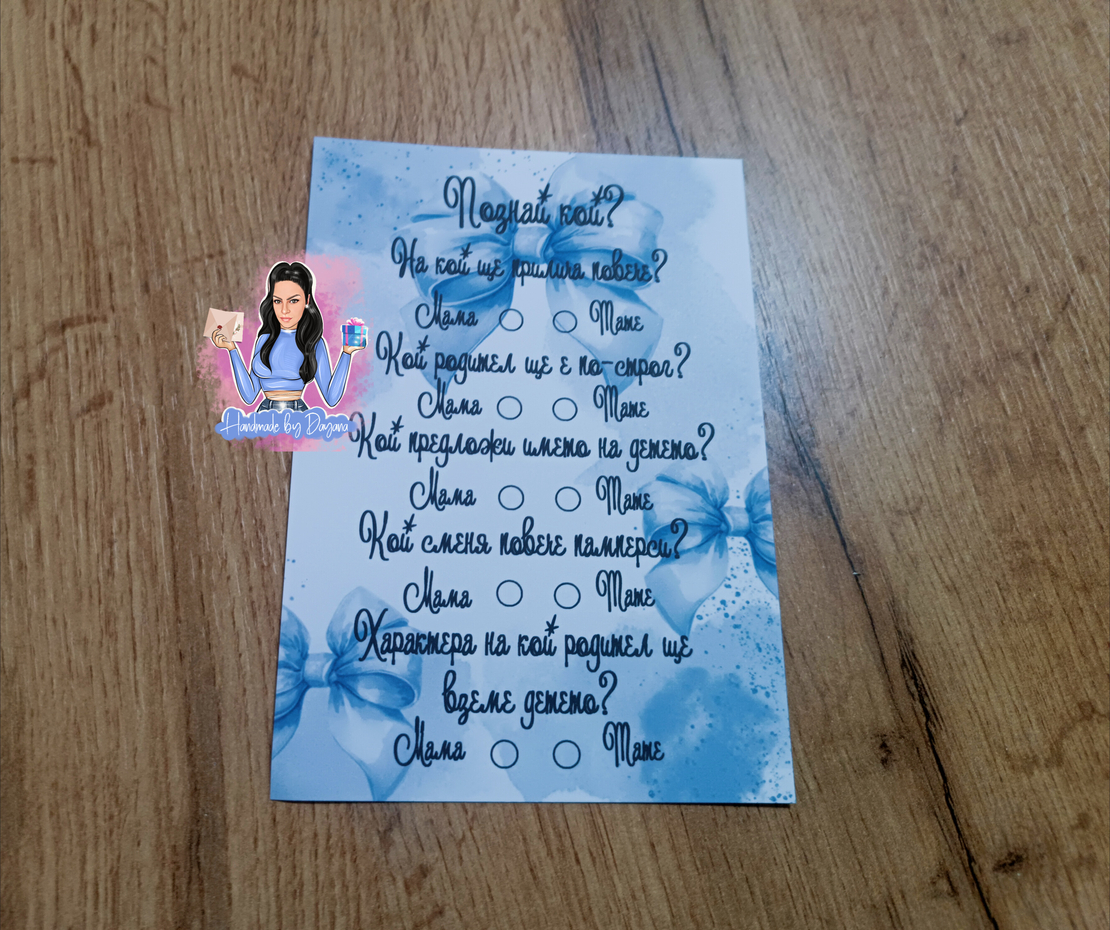 Познай кой?
На кой ще прилича повече?
Мама Тате
Кой родител ще е по-строг?
Мама Тате
Кой предложи името на детето?
Мама Тате
Кой сменя повече памперси?
Мама Тате
Характера на кой родител ще
вземе детето?
Мама Тате
Handmade by Dayana